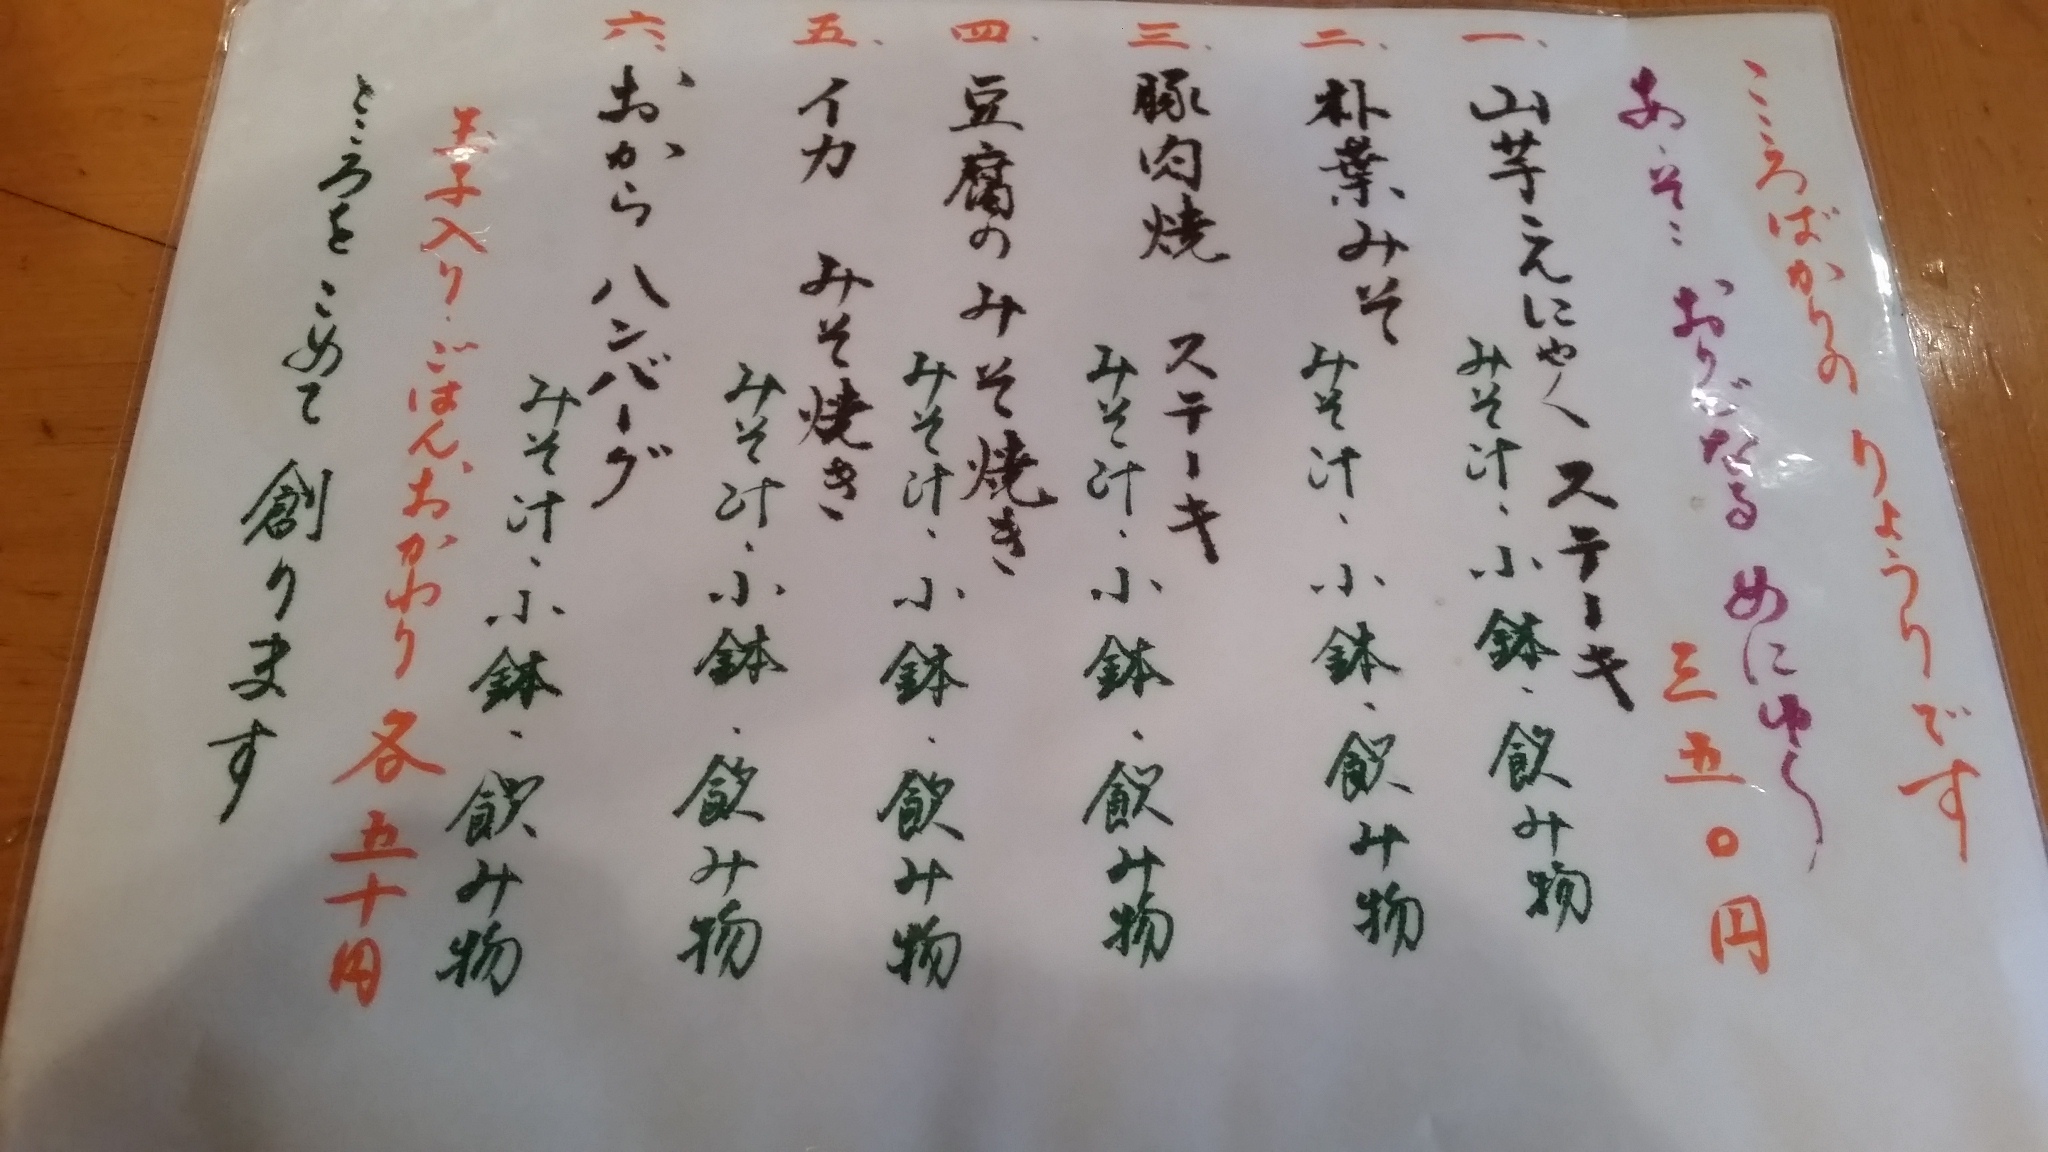 こころばかりの りょうりです
あそこ おりじなる めにゅ〜
三五〇円
一、山芋こんにゃく ステーキ
みそ汁・小鉢・飲み物
二、朴葉みそ
みそ汁・小鉢・飲み物
三、豚肉焼 ステーキ
みそ汁・小鉢・飲み物
四、豆腐のみそ焼き
みそ汁・小鉢・飲み物
五、イカ みそ焼き
みそ汁・小鉢・飲み物
六、おから ハンバーグ
みそ汁・小鉢・飲み物
玉子入り・ごはんおかわり 各五十円
こころをこめて 創ります